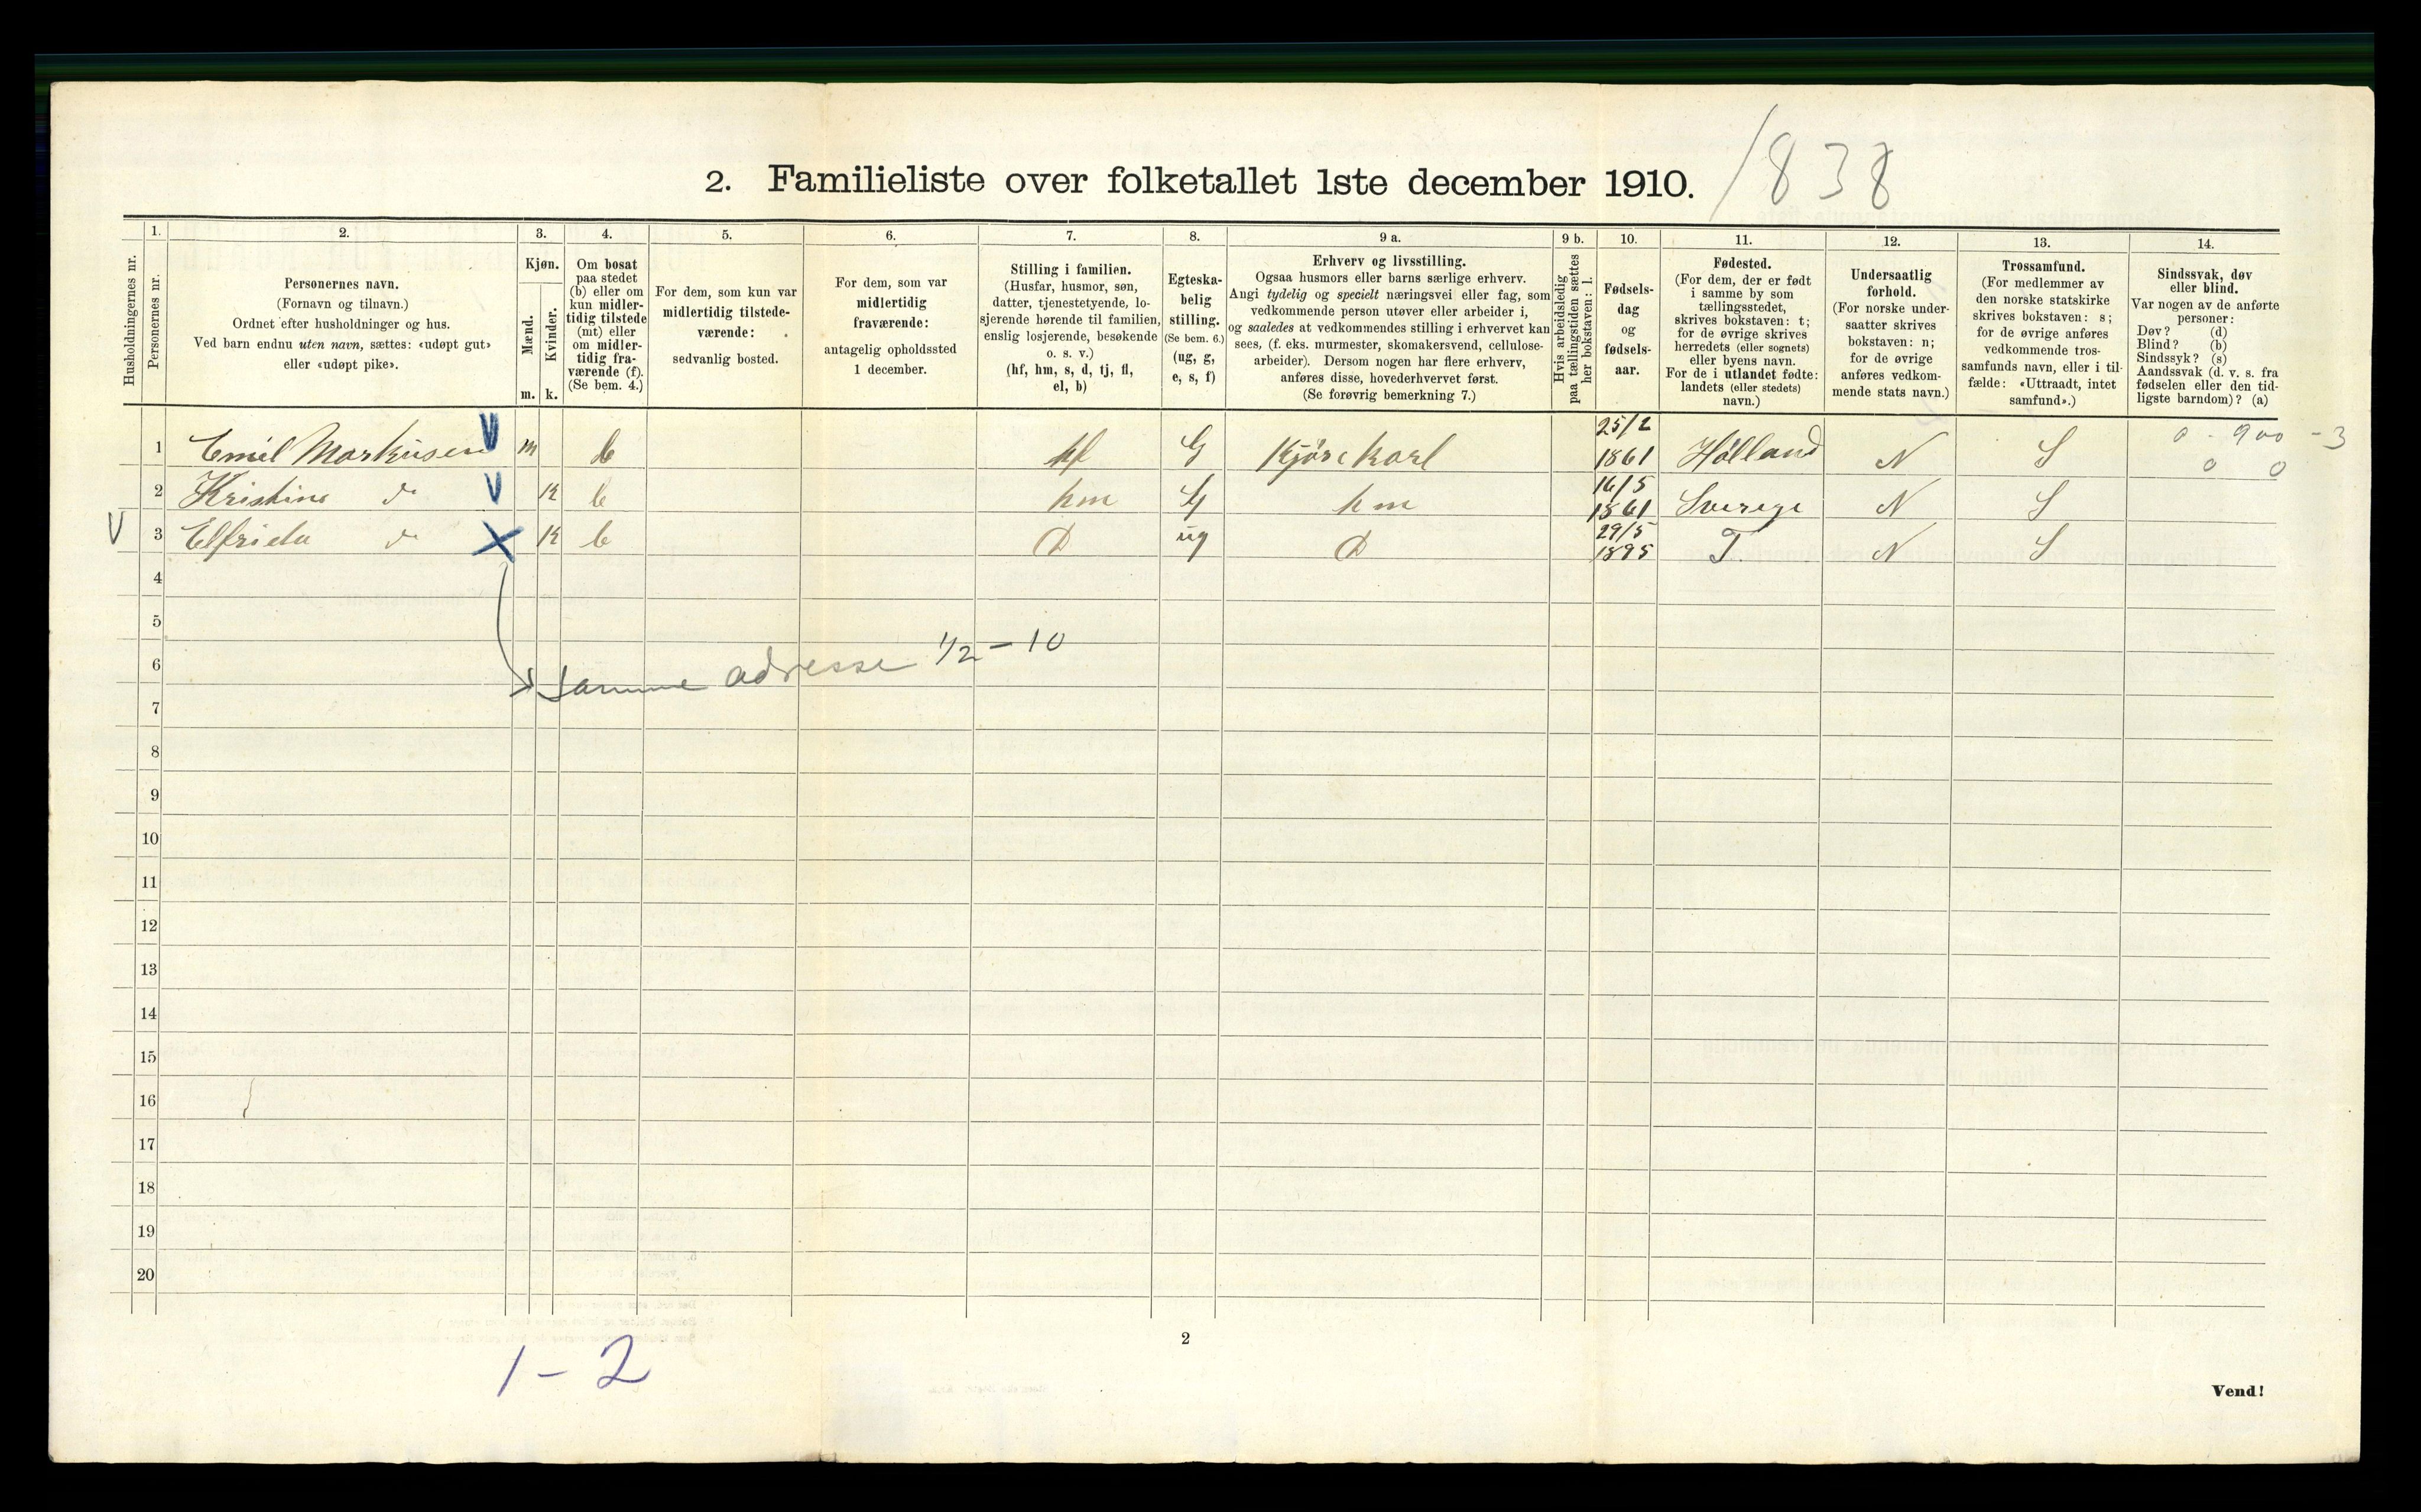 2. Familieliste over folketallet 1ste december 1910.
1838
Husholdningernes nr.
1.
Personernes nr.
2.
Personernes navn.
(Fornavn og tilnavn.)
Ordnet efter husholdninger og hus.
Ved barn endnu uten navn, sættes: «udøpt gut»
eller «udøpt pike».
3.
Kjøn.
Mænd.
Kvinder.
m.
k.
4.
Om bosat
paa stedet
(b) eller om
kun midler-
tidig tilstede
(mt) eller
om midler-
tidig fra-
værende (f).
(Se bem. 4.)
5.
For dem, som kun var
midlertidig tilstede-
værende:
sedvanlig bosted.
6.
For dem, som var
midlertidig
fraværende:
antagelig opholdssted
1 december.
7.
Stilling i familien.
(Husfar, husmor, søn,
datter, tjenestetyende, lo-
sjerende hørende til familien,
enslig losjerende, besøkende
o. s. v.)
(hf, hm, s, d, tj, fl,
el, b)
8.
Egteska-
belig
stilling.
(Se bem. 6.)
(ug, g,
e, s, f)
9 a.
Erhverv og livsstilling.
Ogsaa husmors eller barns særlige erhverv.
Angi tydelig og specielt næringsvei eller fag, som
vedkommende person utøver eller arbeider i,
og saaledes at vedkommendes stilling i erhvervet kan
sees, (f. eks. murmester, skomakersvend, cellulose-
arbeider). Dersom nogen har flere erhverv,
anføres disse, hovederhvervet først.
(Se forøvrig bemerkning 7.)
9 b.
Hvis arbeidsledig
paa tællingstiden sættes
her bokstaven: l.
10.
Fødsels-
dag
og
fødsels-
aar.
11.
Fødested.
(For dem, der er født
i samme by som
tællingsstedet,
skrives bokstaven: t;
for de øvrige skrives
herredets (eller sognets)
eller byens navn.
For de i utlandet fødte:
landets (eller stedets)
navn.)
12.
Undersaatlig
forhold.
(For norske under-
saatter skrives
bokstaven: n;
for de øvrige
anføres vedkom-
mende stats navn.)
13.
Trossamfund.
(For medlemmer av
den norske statskirke
skrives bokstaven: s;
for de øvrige anføres
vedkommende tros-
samfunds navn, eller i til-
fælde: «Uttraadt, intet
samfund».)
14.
Sindssvak, døv
eller blind.
Var nogen av de anførte
personer:
Døv? (d)
Blind? (b)
Sindssyk? (s)
Aandssvak (d. v. s. fra
fødselen eller den tid-
ligste barndom)? (a)
1 Emil Markusen V m b hf G Kjørekarl 25/2 1861 Hölland N S 0 - 900 - 3
0 0
2 Kristine do V K b hm G hm 16/5 1861 Sverige N S
V 3 Elfrida do X K b D ug D 29/5 1895 T. N S
4
5
6 samme adresse 1/2 – 10
7
8
9
10
11
12
13
14
15
16
17
18
19
20
1 - 2
2
Vend!